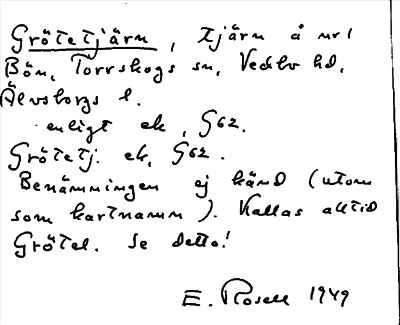 Grötetjärn, tjärn å nr 1
Bön, Torrskogs sn, Vedbo hd,
Älvsborgs l.
enligt ek, G62.
Grötetj. ek, G62.
Benämningen ej känd (utom
som kartnamn). Kallas alltid
Grötel. Se detta!
E. Rosell 1949